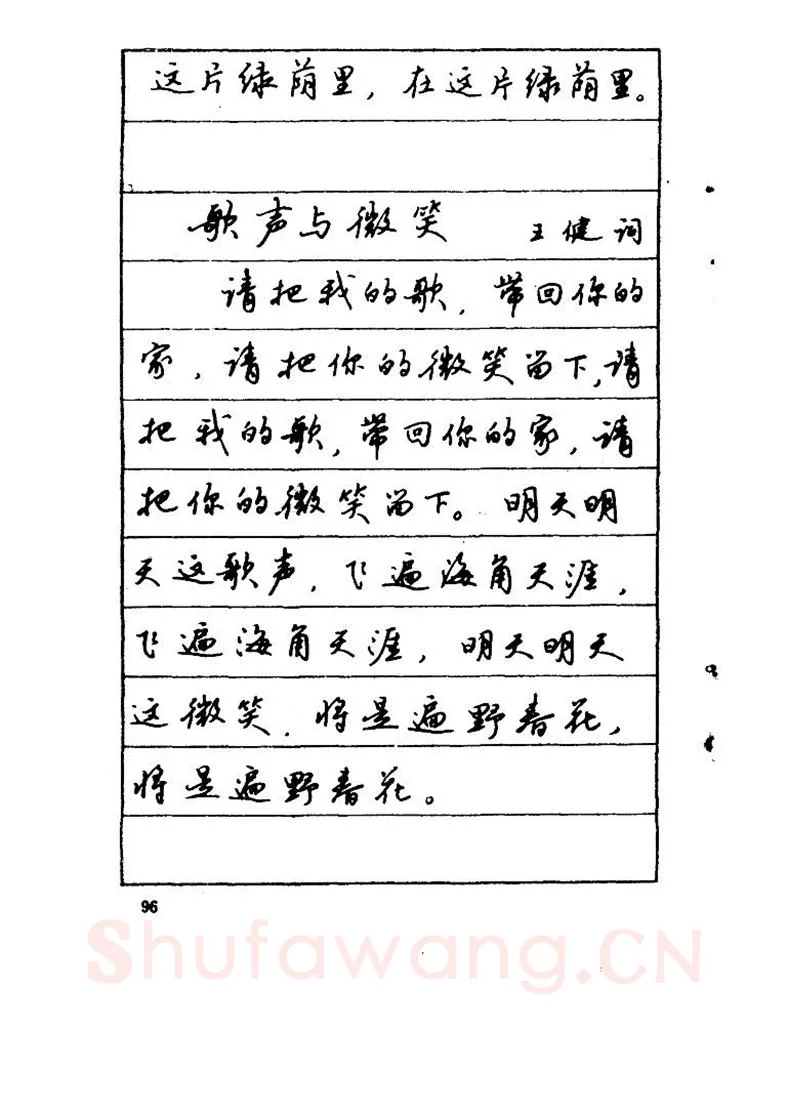 这片绿荫里，在这片绿荫里。
歌声与微笑 王健词
请把我的歌，带回你的
家，请把你的微笑留下，请
把我的歌，带回你的家，请
把你的微笑留下。明天明
天这歌声，飞遍海角天涯，
飞遍海角天涯，明天明天
这微笑，将是遍野春花，
将是遍野春花。
96
Shufawang.CN